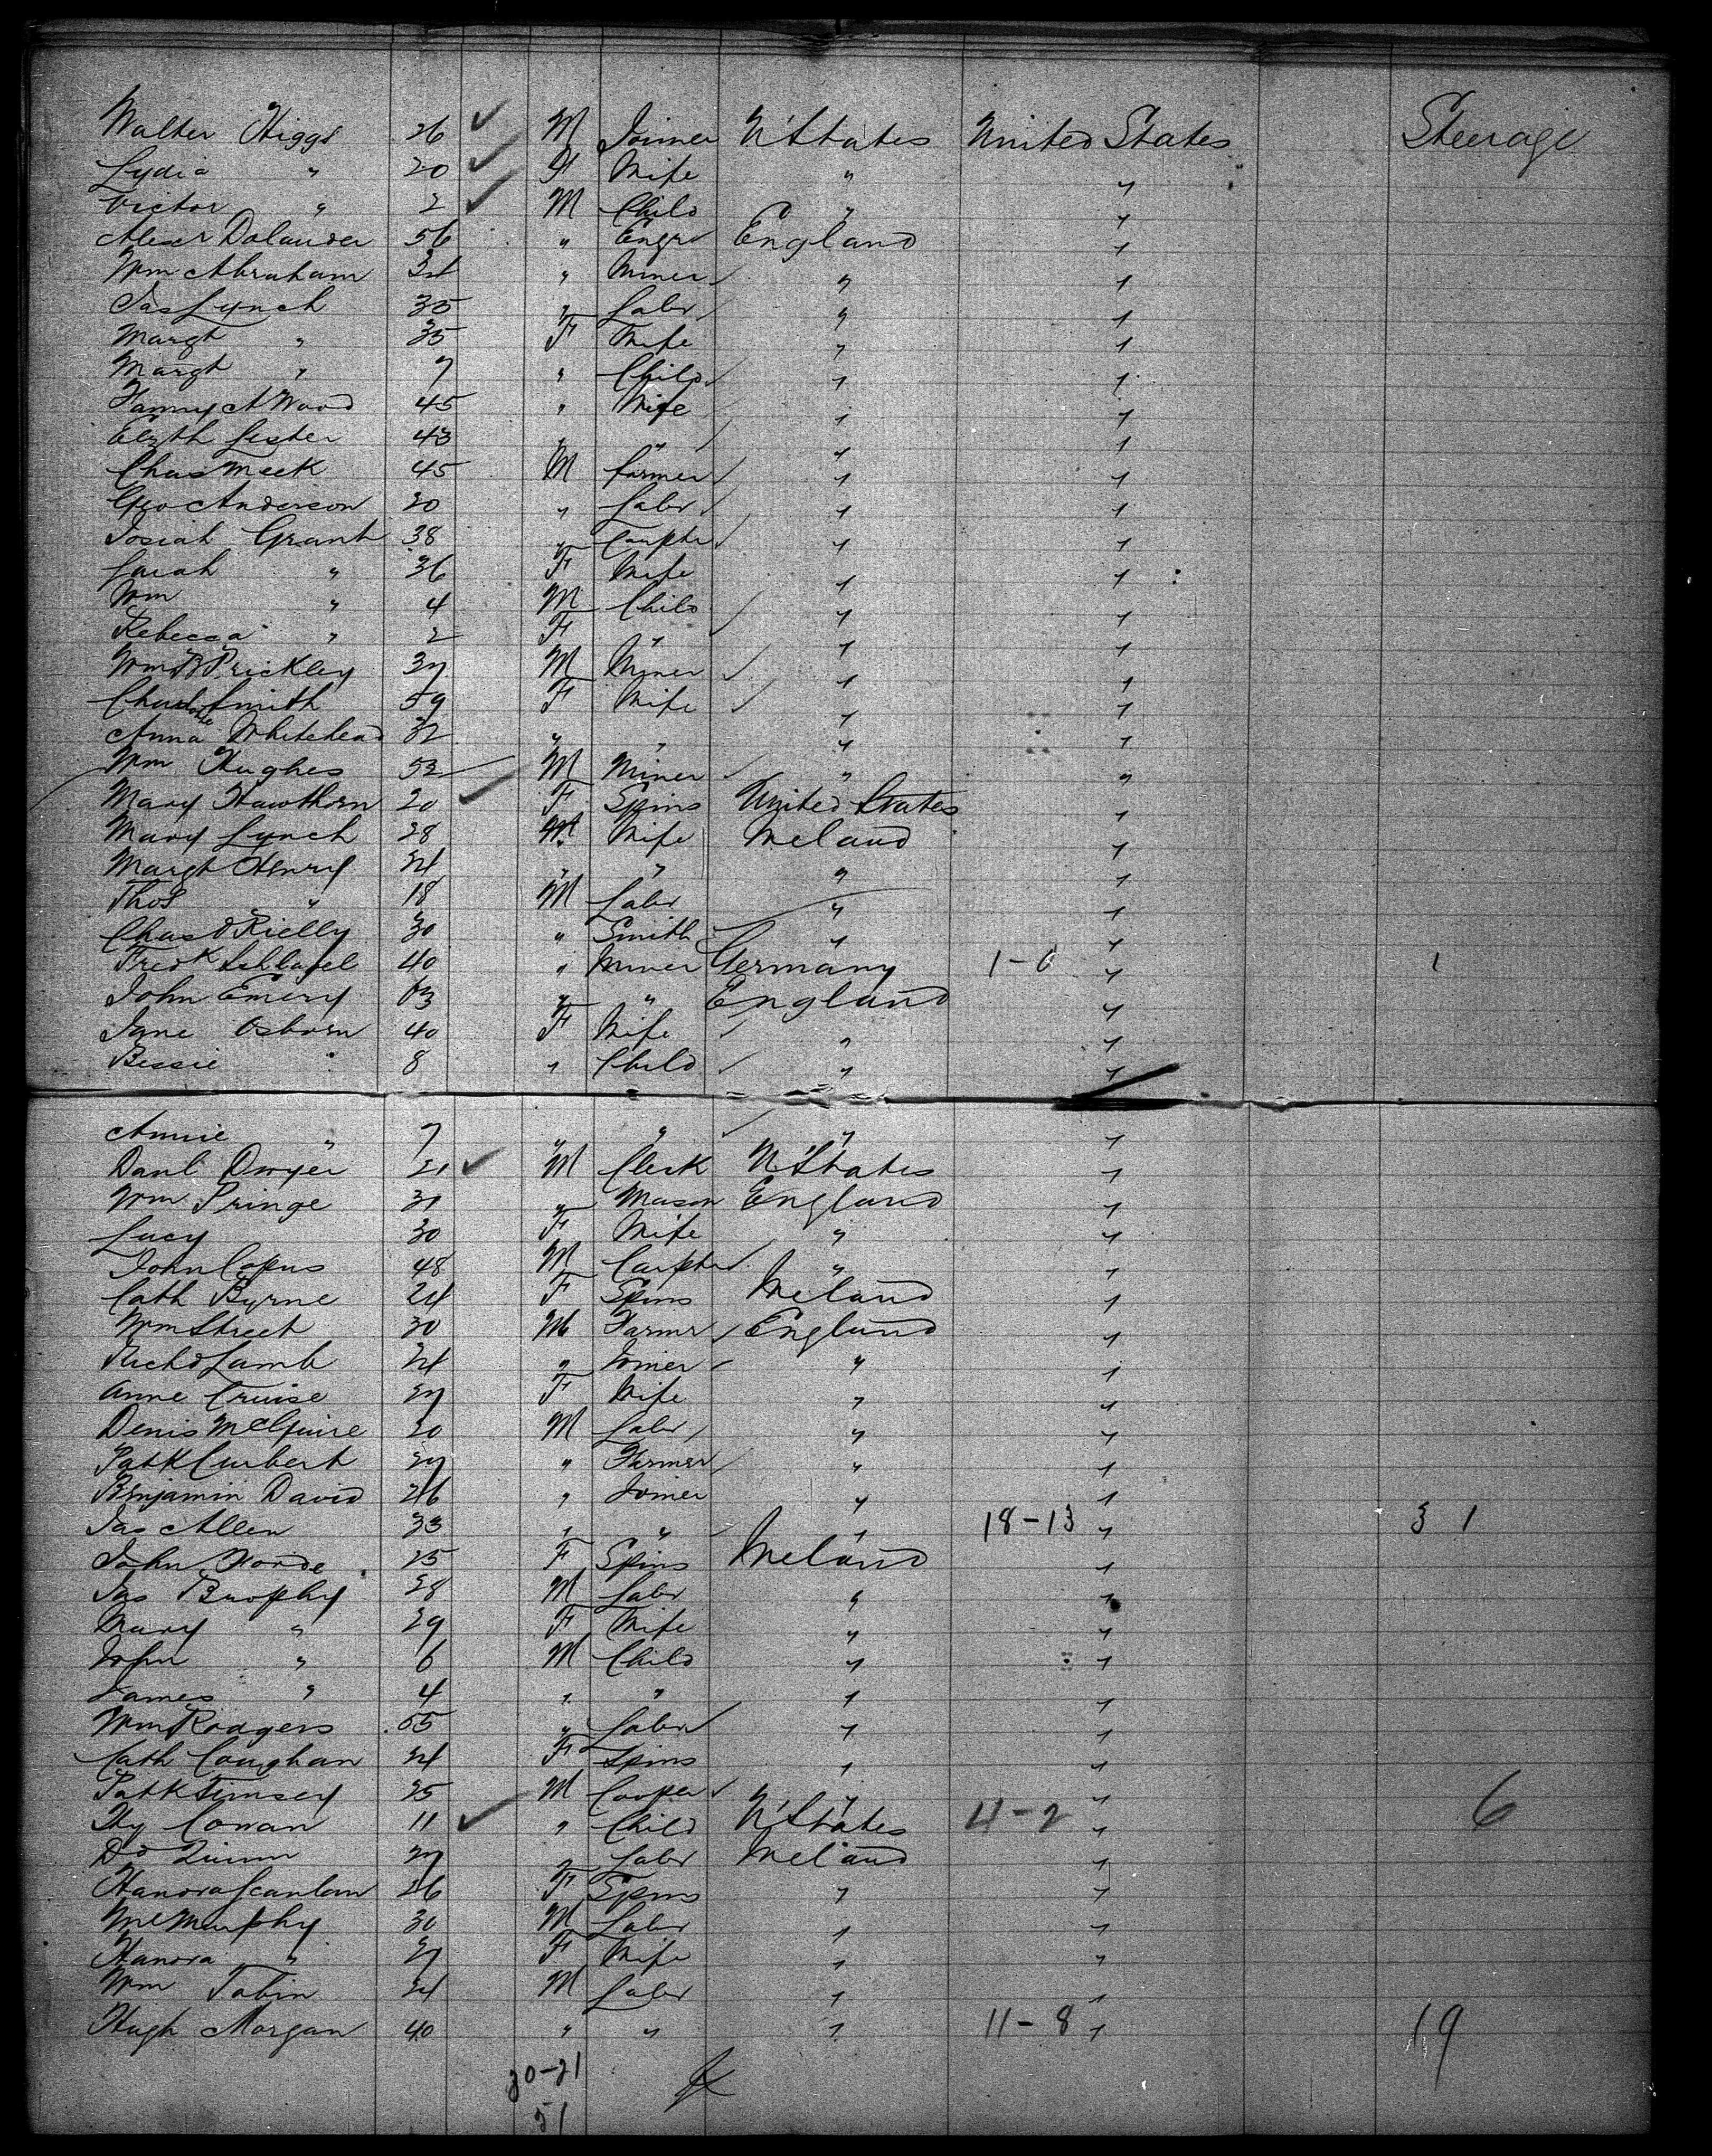 Walter Higgs 26 M Joiner U'States United States Steerage
Lydia " 20 F Wife " "
Victor " 2 M Child " "
Alexr Dolander 56 " Engr England "
Wm Abraham 24 " Miner " "
Jas Lynch 35 " Labr " "
Margt " 35 F Wife " "
Margt " 7 " Child " "
Fanny A Wood 45 " Wife " "
Elzth Lester 43 " " " "
Chas Meek 45 M Farmer " "
Geo Anderson 20 " Labr " "
Josiah Grant 38 " Carptr " "
Sarah " 36 F Wife " "
Wm " 4 M Child " "
Rebecca " 2 F " " "
Wm B Prickley 37 M Miner " "
Charlotte Smith 59 F Wife " "
Anna Whitehead 32 " " " "
Wm Hughes 52 M Miner " "
Mary Hawthorn 20 F Spins United States "
Mary Lynch 28 Wife Ireland "
Margt Henry 24 " " " "
Thos " 18 M Labr " "
Chas O'Rielly 30 " Smith " "
Fredk 40 " Miner Germany 1-0 " 1
John Emery 63 " " England "
Jane Osborn 40 F Wife " "
Bessie " 8 " Child " "
Annie " 7 " " " "
Danl Dwyer 21 M Clerk U'States "
Wm Pringe 31 " Mason England "
Lucy 30 F Wife " "
John Copus 48 M Carptr " "
Cath Byrne 24 F Spins Ireland "
Wm Street 30 M Farmr England "
Richd Lamb 24 " Joiner " "
Anne Cruise 27 F Wife " "
Denis McGuire 20 M Labr " "
Patk Curbert 27 " Farmer " "
Benjamin David 26 " Joiner " "
Jas Allen 33 " " " 18-13 " 3 1
John Forde 25 F Spins Ireland "
Jas Brophy 28 M Labr " "
Mary " 29 F Wife " "
John " 6 M Child " "
James " 4 " " " "
Wm Rodgers 55 " Labr " "
Cath Coughan 24 F Spins " "
Patk Timsey 25 M Cooper " "
Hy Cowan 11 " Child U'States 4-2 " 6
Dd Quinn 27 " Labr Ireland "
Hanora Scanlan 26 F Spins " "
Ml Murphy 30 M Labr " "
Hanora " 27 F Wife " "
Wm Tobin 24 M Labr " "
Hugh Morgan 40 " " " 11-8 " 19
30-21
51